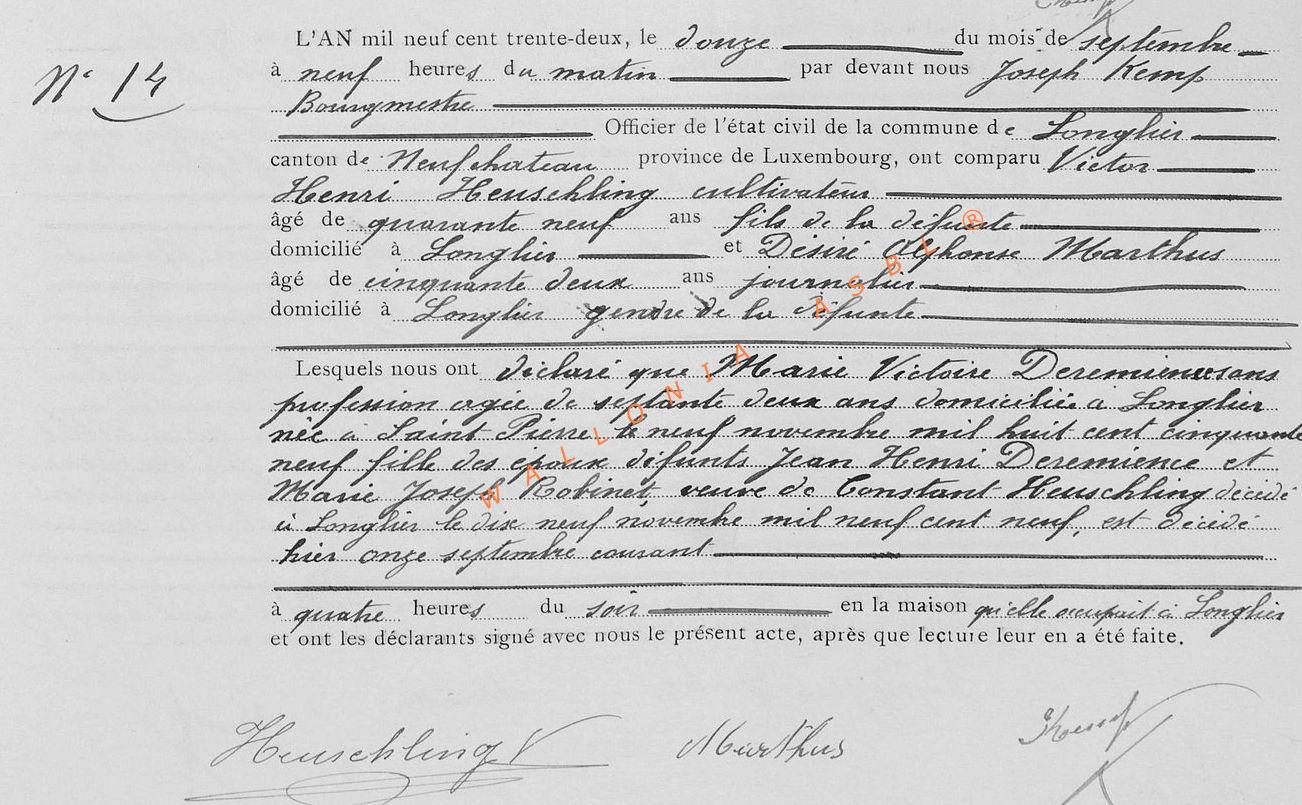 L'AN mil neuf cent trente-deux, le douze du mois de septembre
N° 14
à neuf heures du matin par devant nous Joseph Kemp
Bourgmestre
Officier de l'état civil de la commune de Longlier
canton de Neufchateau province de Luxembourg, ont comparu Victor
Henri Heuschling cultivateur
âgé de quarante neuf ans fils de la défunte
domicilié à Longlier et Désiré Alphonse Marthus
âgé de cinquante deux ans journalier
domicilié à Longlier gendre de la défunte
Lesquels nous ont déclaré que Marie Victoire Deremience sans
profession agée de septante deux ans domiciliée à Longlier
née à Saint Pierre le neuf novembre mil huit cent cinquante
neuf fille des époux défunts Jean Henri Deremience et
Marie Joseph Robinet, veuve de Constant Heuschling décédé
à Longlier le dix neuf novembre mil neuf cent neuf, est décédé
hier onze septembre courant
à quatre heures du soir en la maison qu'elle occupait à Longlier
et ont les déclarants signé avec nous le présent acte, après que lecture leur en a été faite.
Heuschling V Marthus Kemp
WALLONIA ASBL ®